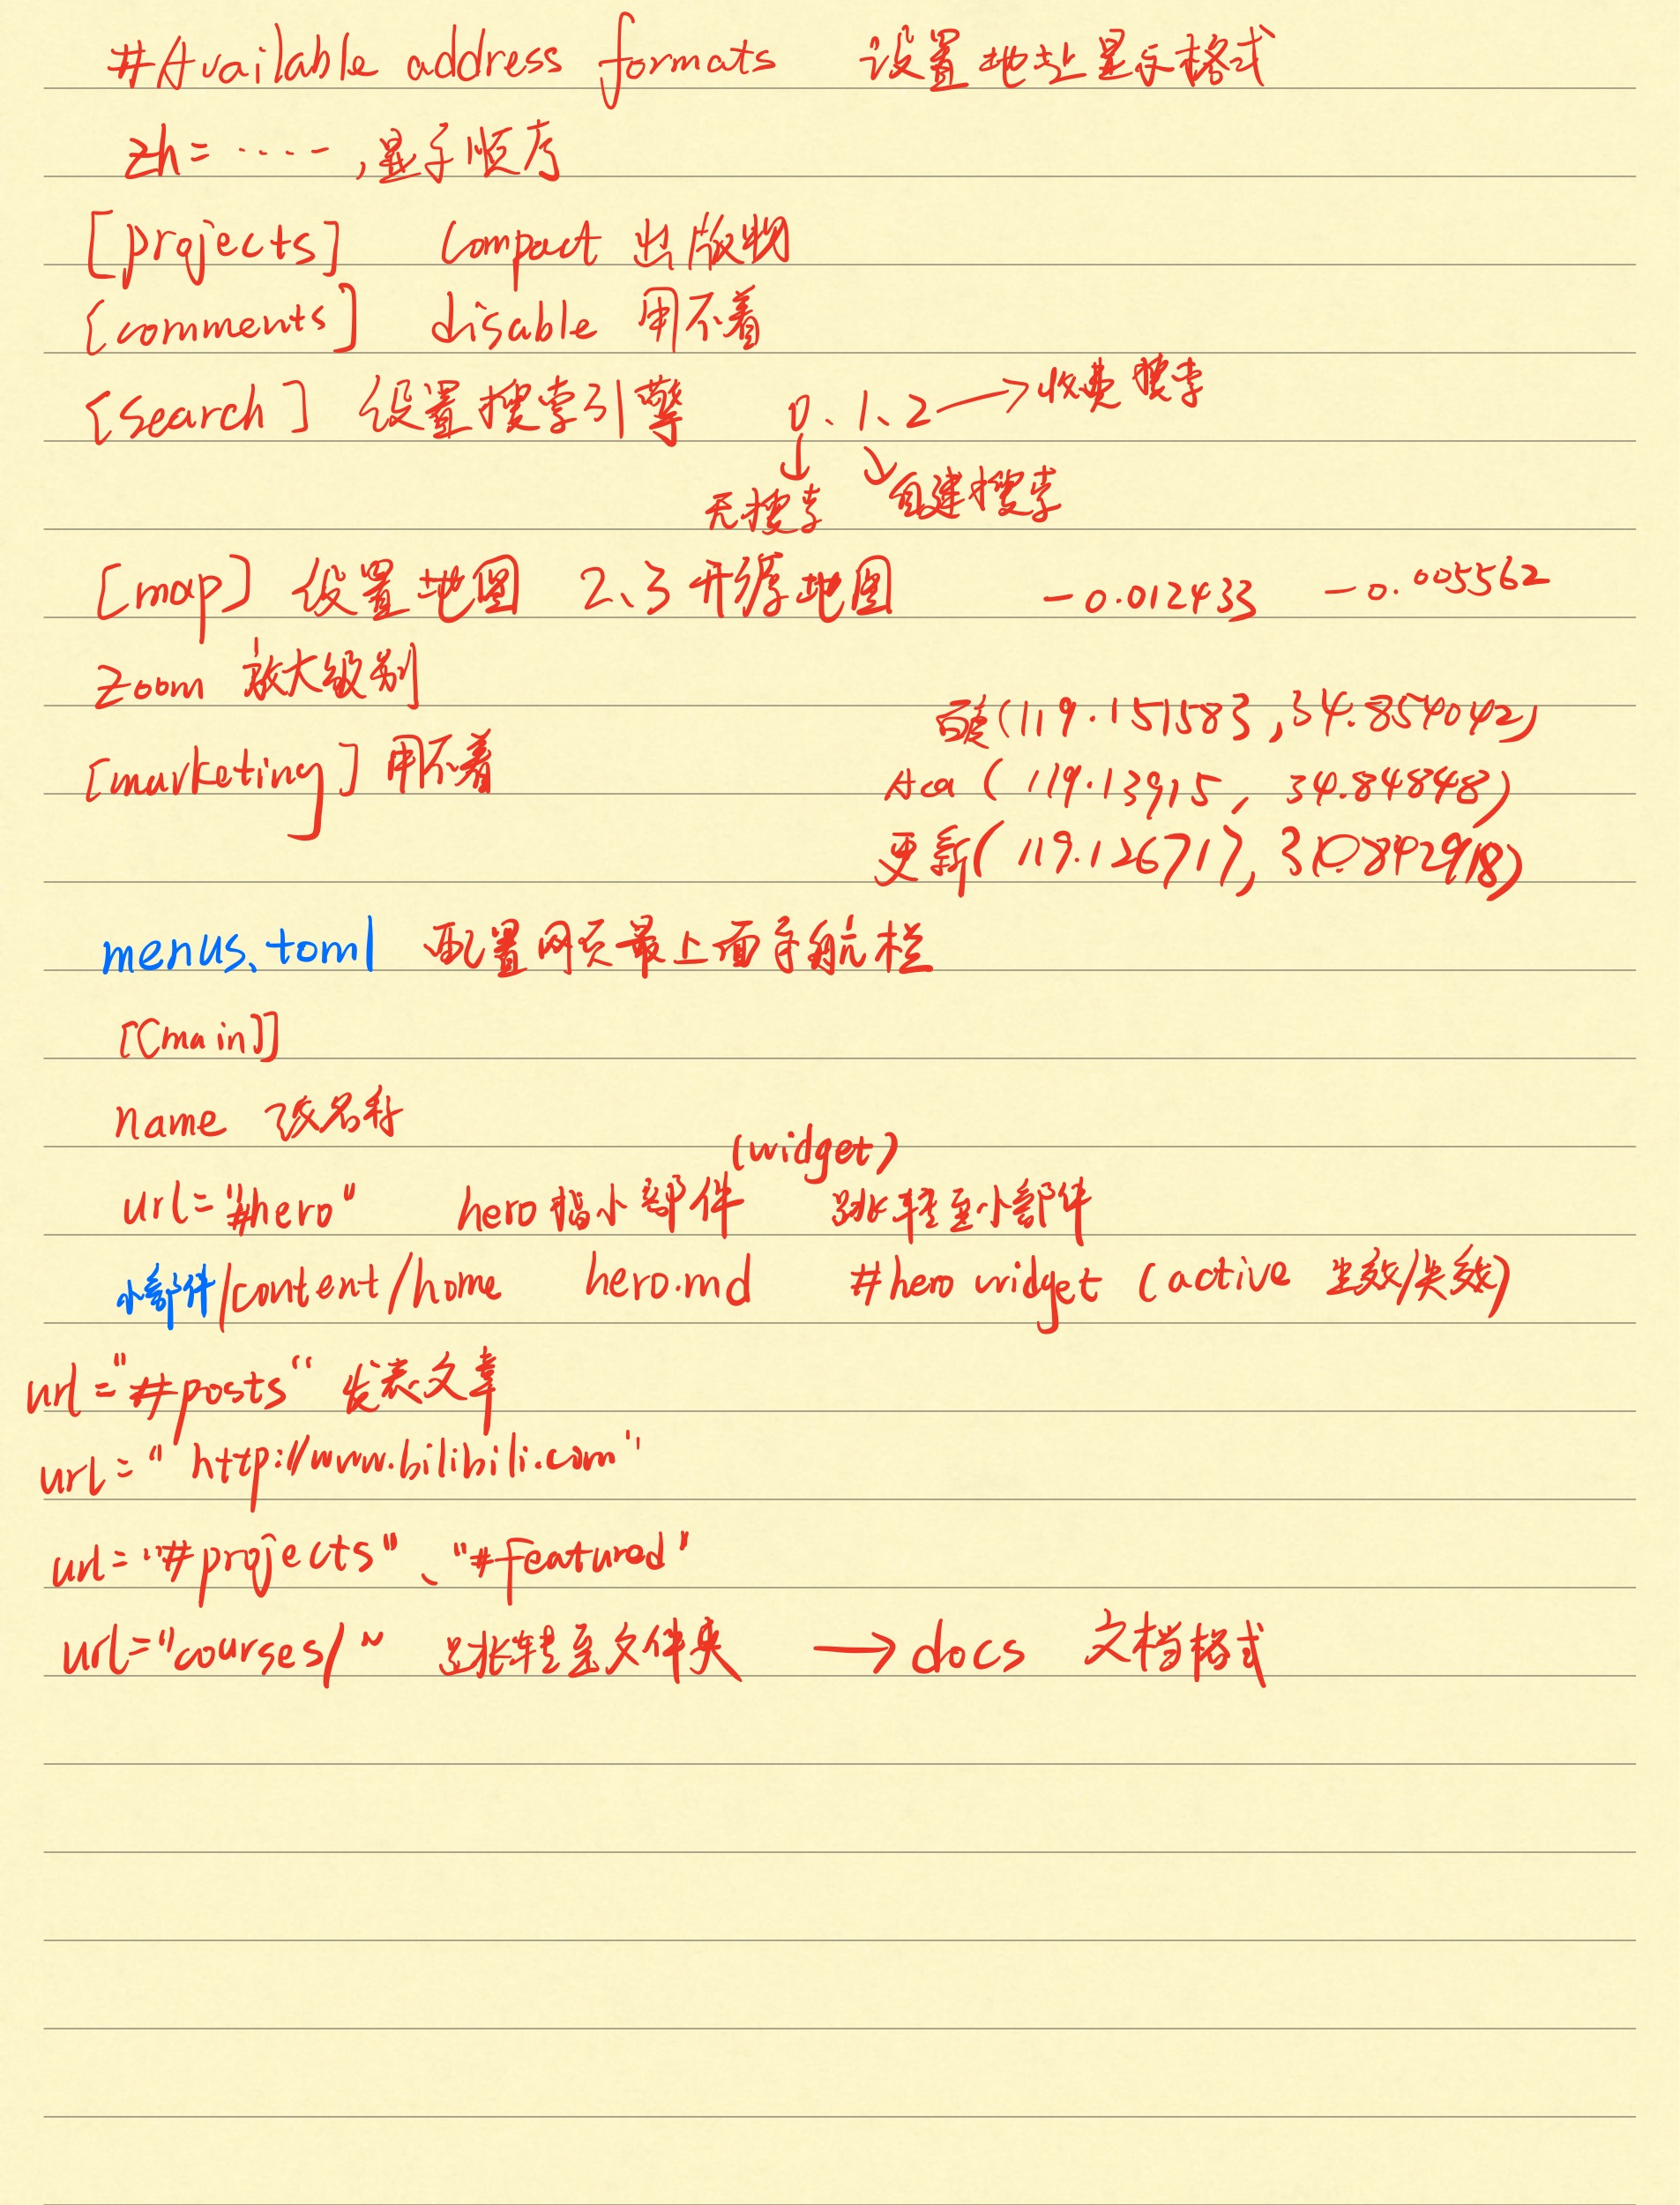 #Available address formats 设置地址显示格式
zh= ·····, 显示顺序
[projects] compact 出版物
[comments] disable 用不着
[search] 设置搜索引擎 0、1、2→收费搜索
↓无搜索 ↘自建搜索
[map] 设置地图 2、3 开源地图 -0.012433 -0.005562
zoom 放大级别
百度(119.151583,34.854042)
[marketing] 用不着
Aca (119.13915, 34.84848)
更新(119.126717,
menus.toml 配置网页最上面导航栏
[[main]]
name 改名称
(widget)
url="#hero" hero指小部件 跳转至小部件
小部件/content/home hero.md #hero widget (active 生效/失效)
url="#posts" 发表文章
url="http://www.bilibili.com"
url="#projects"、"#featured"
url="courses/" 跳转至文件夹 → docs 文档格式